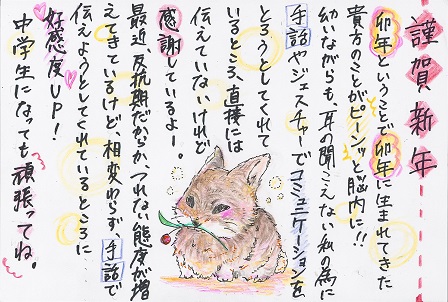 謹賀新年
卯年ということで卯年に生まれてきた
貴方のことがピーンッと脳内に!!
幼いながらも、耳の聞こえない私の為に
手話やジェスチャーでコミュニケーションを
とろうとしてくれて
いるところ、直接には
伝えていないけれど
感謝しているよー。
最近、反抗期だからか、つれない態度が増
えてきているけど、相変わらず、手話で
伝えようとしてくれているところに
好感度UP!
中学生になっても頑張ってね。